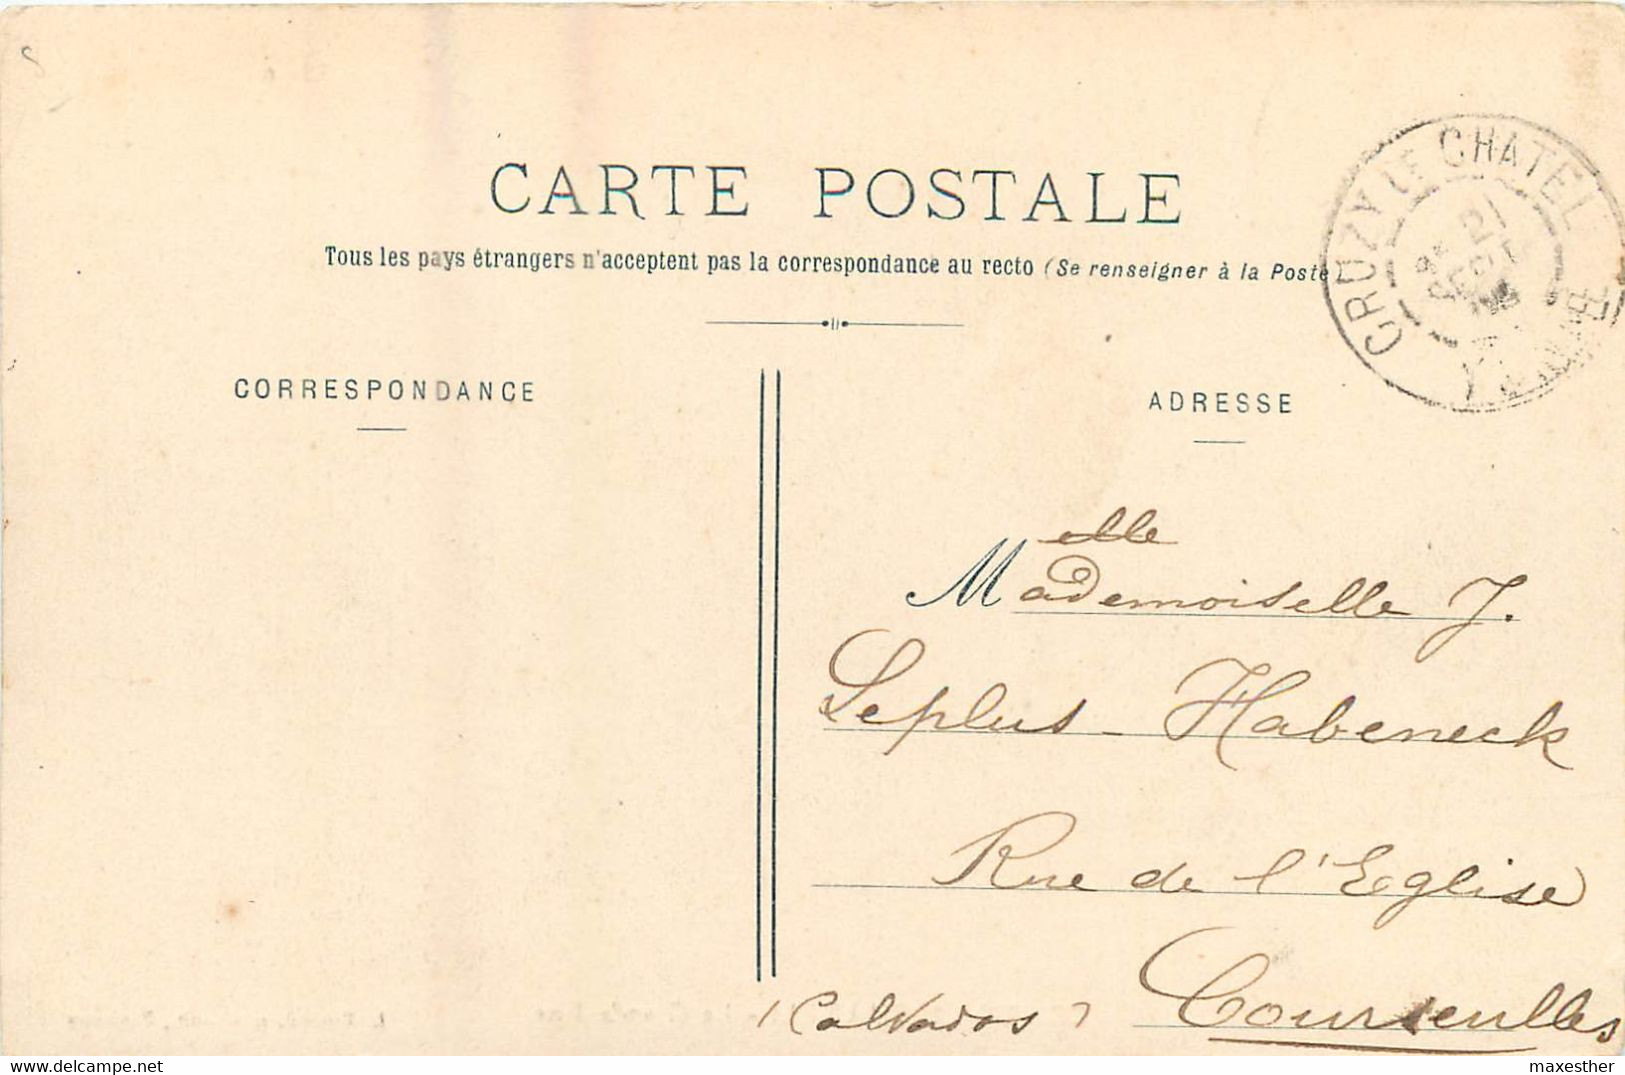 CARTE POSTALE
Tous les pays étrangers n'acceptent pas la correspondance au recto (Se renseigner à la Poste)
CRUZY LE CHATEL
YONNE
CORRESPONDANCE
ADRESSE
elle
Mademoiselle J.
Leplus - Habeneck
Rue de l'Eglise
Courseulles
(Calvados)
maxesther